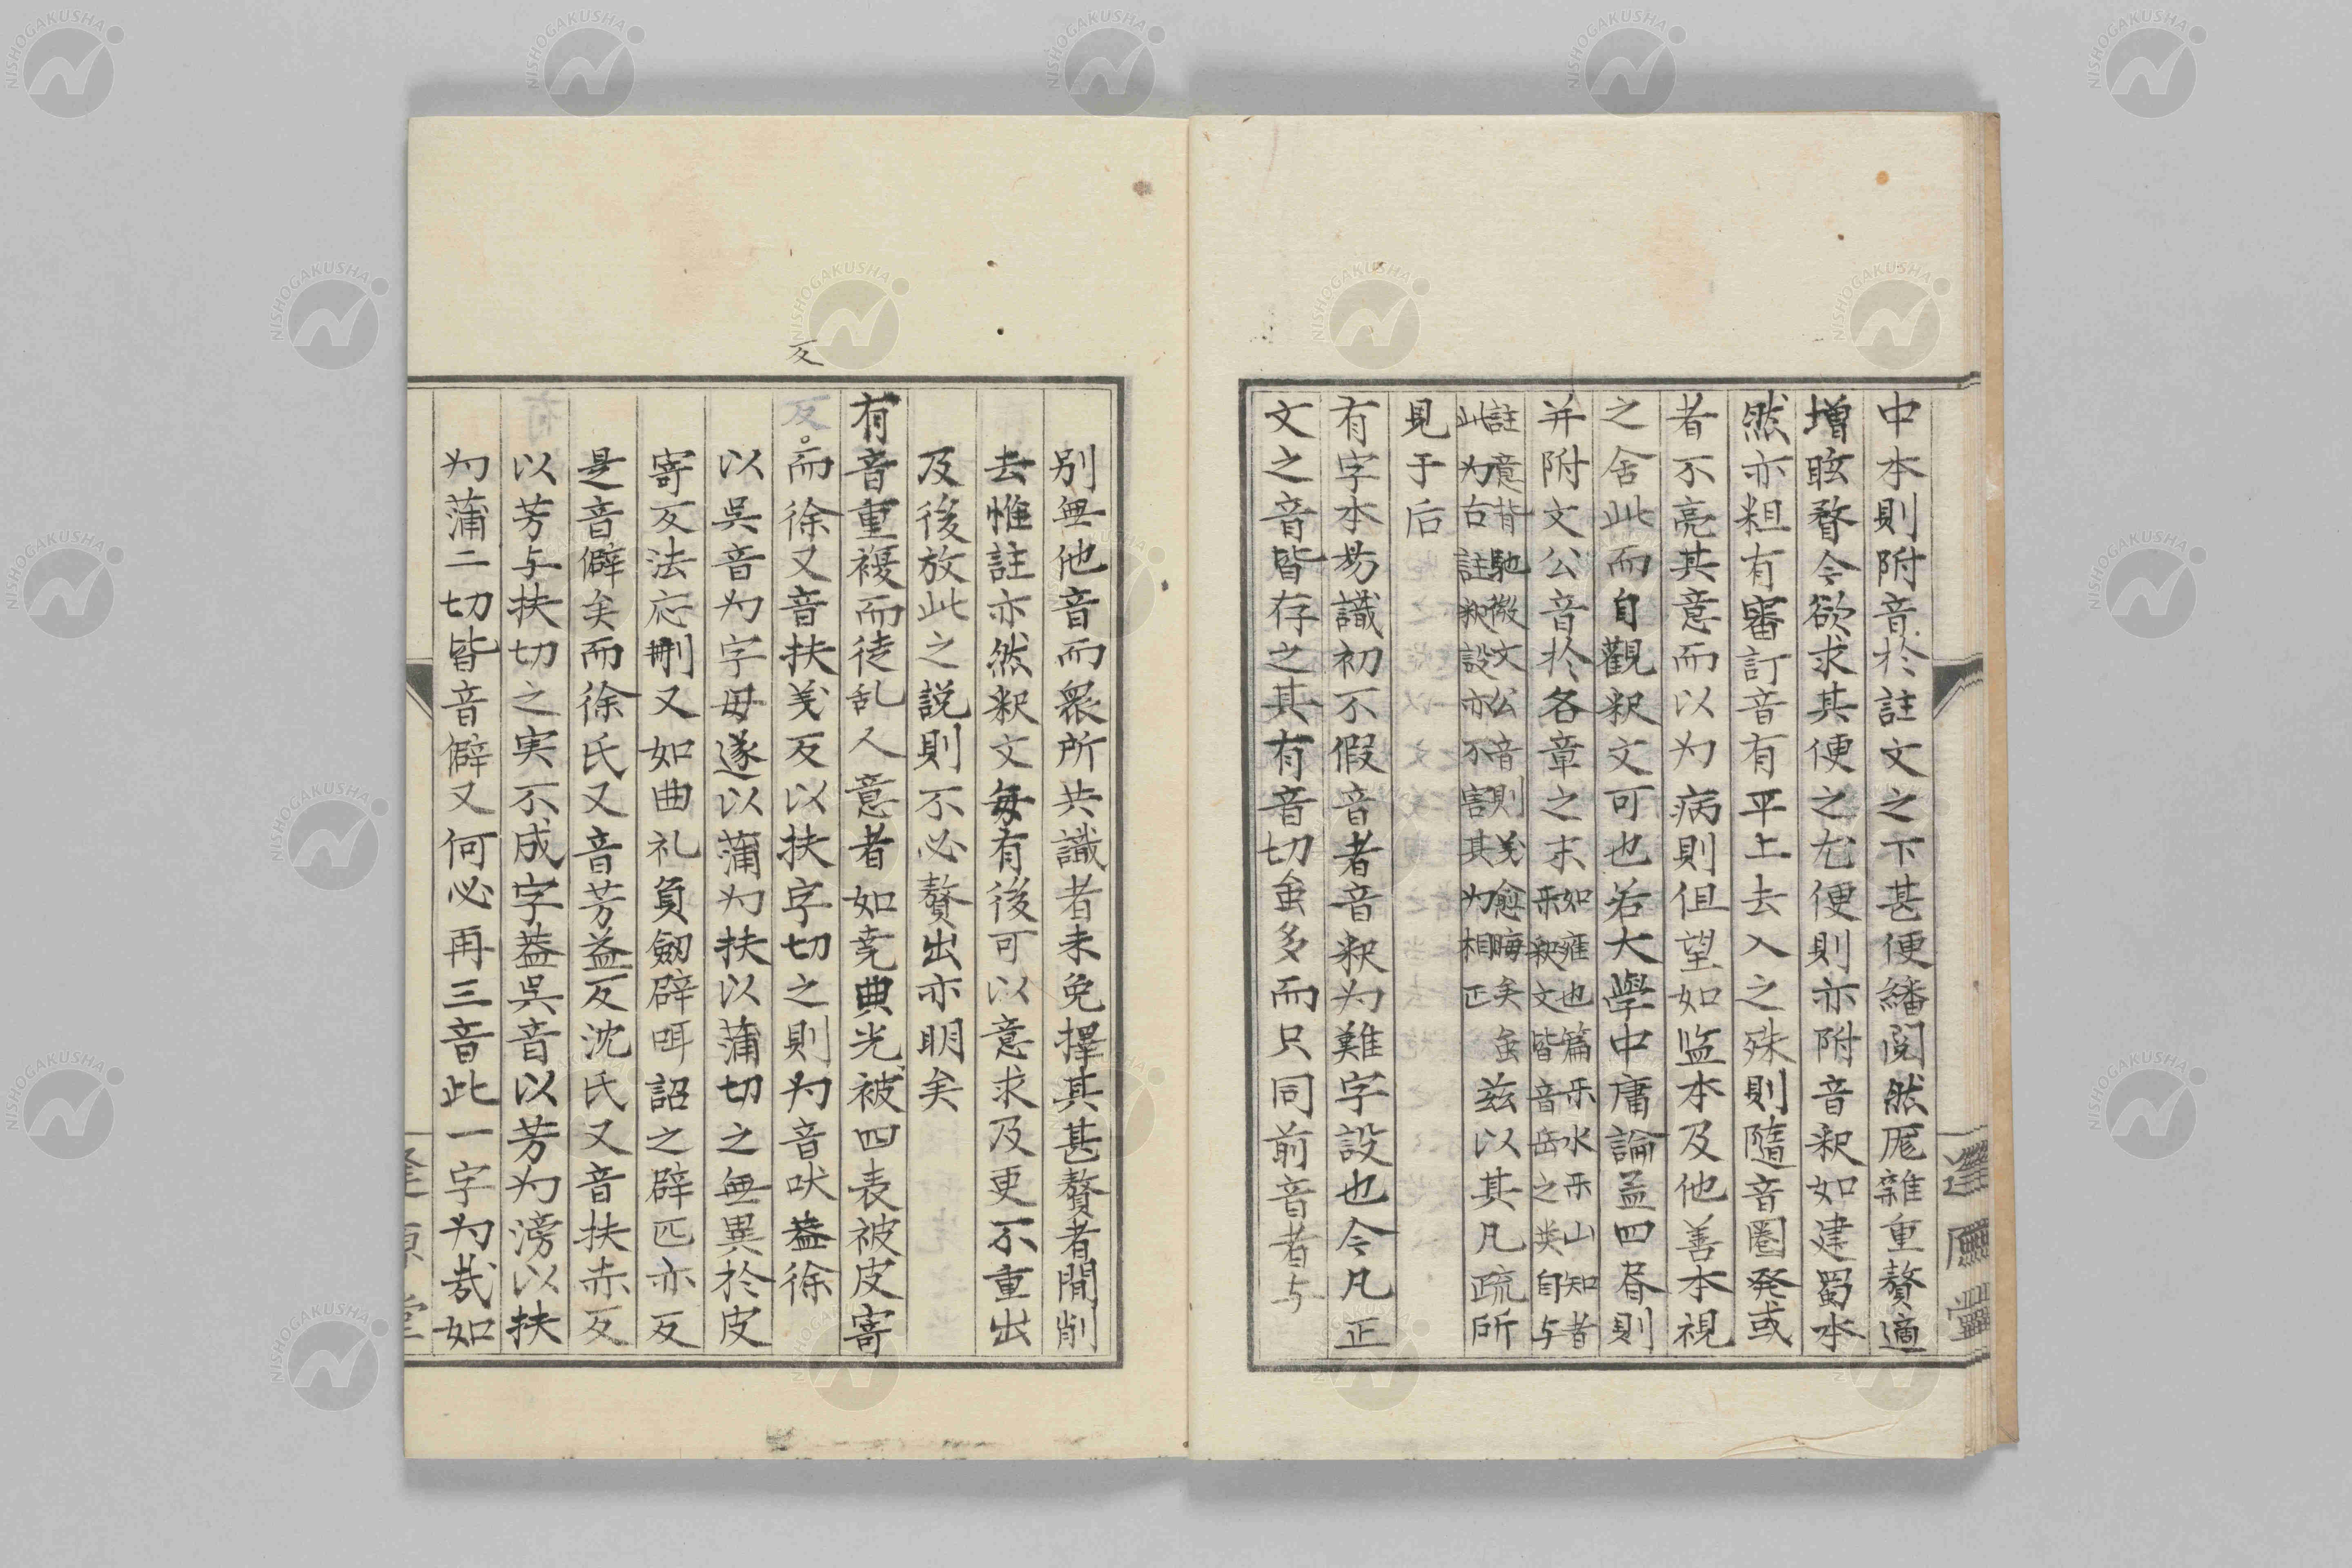 中本則附音於註文之下甚便繙閱然厖雜重贅適
増眩瞀今欲求其便之尤便則亦附音釈如建蜀本
然亦粗有審訂音有平上去入之殊則隨音圏発或
者不亮其意而以为病則伹望如监本及他善本視
之舍此而自觀釈文可也若大學中庸論孟四書則
并附文公音於各章之末如雍也篇乐水乐山知者
乐釈文皆音岳之类自与
註意背馳微文公音則义愈晦矣虽兹以其凡疏所
此为古註釈設亦不害其为相正
見于后
有字本昜識初不假音者音釈为難字設也今凡正
文之音皆存之其有音切虽多而只同前音者与
別無他音而衆所共識者未免擇其甚贅者間削
去惟註亦然釈文毎有後可以意求及更不重出
及後放此之説則不必贅出亦明矣
有音重複而徒乱人意者如尭典光被四表被皮寄
反
反而徐又音扶义反以扶字切之則为音吠葢徐
以吳音为字毋遂以蒲为扶以蒲切之無異於皮
寄反法応刪又如曲礼負劒辟咡詔之辟匹亦反
是音僻矣而徐氏又音芳益反沈氏又音扶赤反
以芳与扶切之实不成字葢吳音以芳为滂以扶
为蒲二切皆音僻又何必再三音此一字为哉如
NISHOGAKUSHA